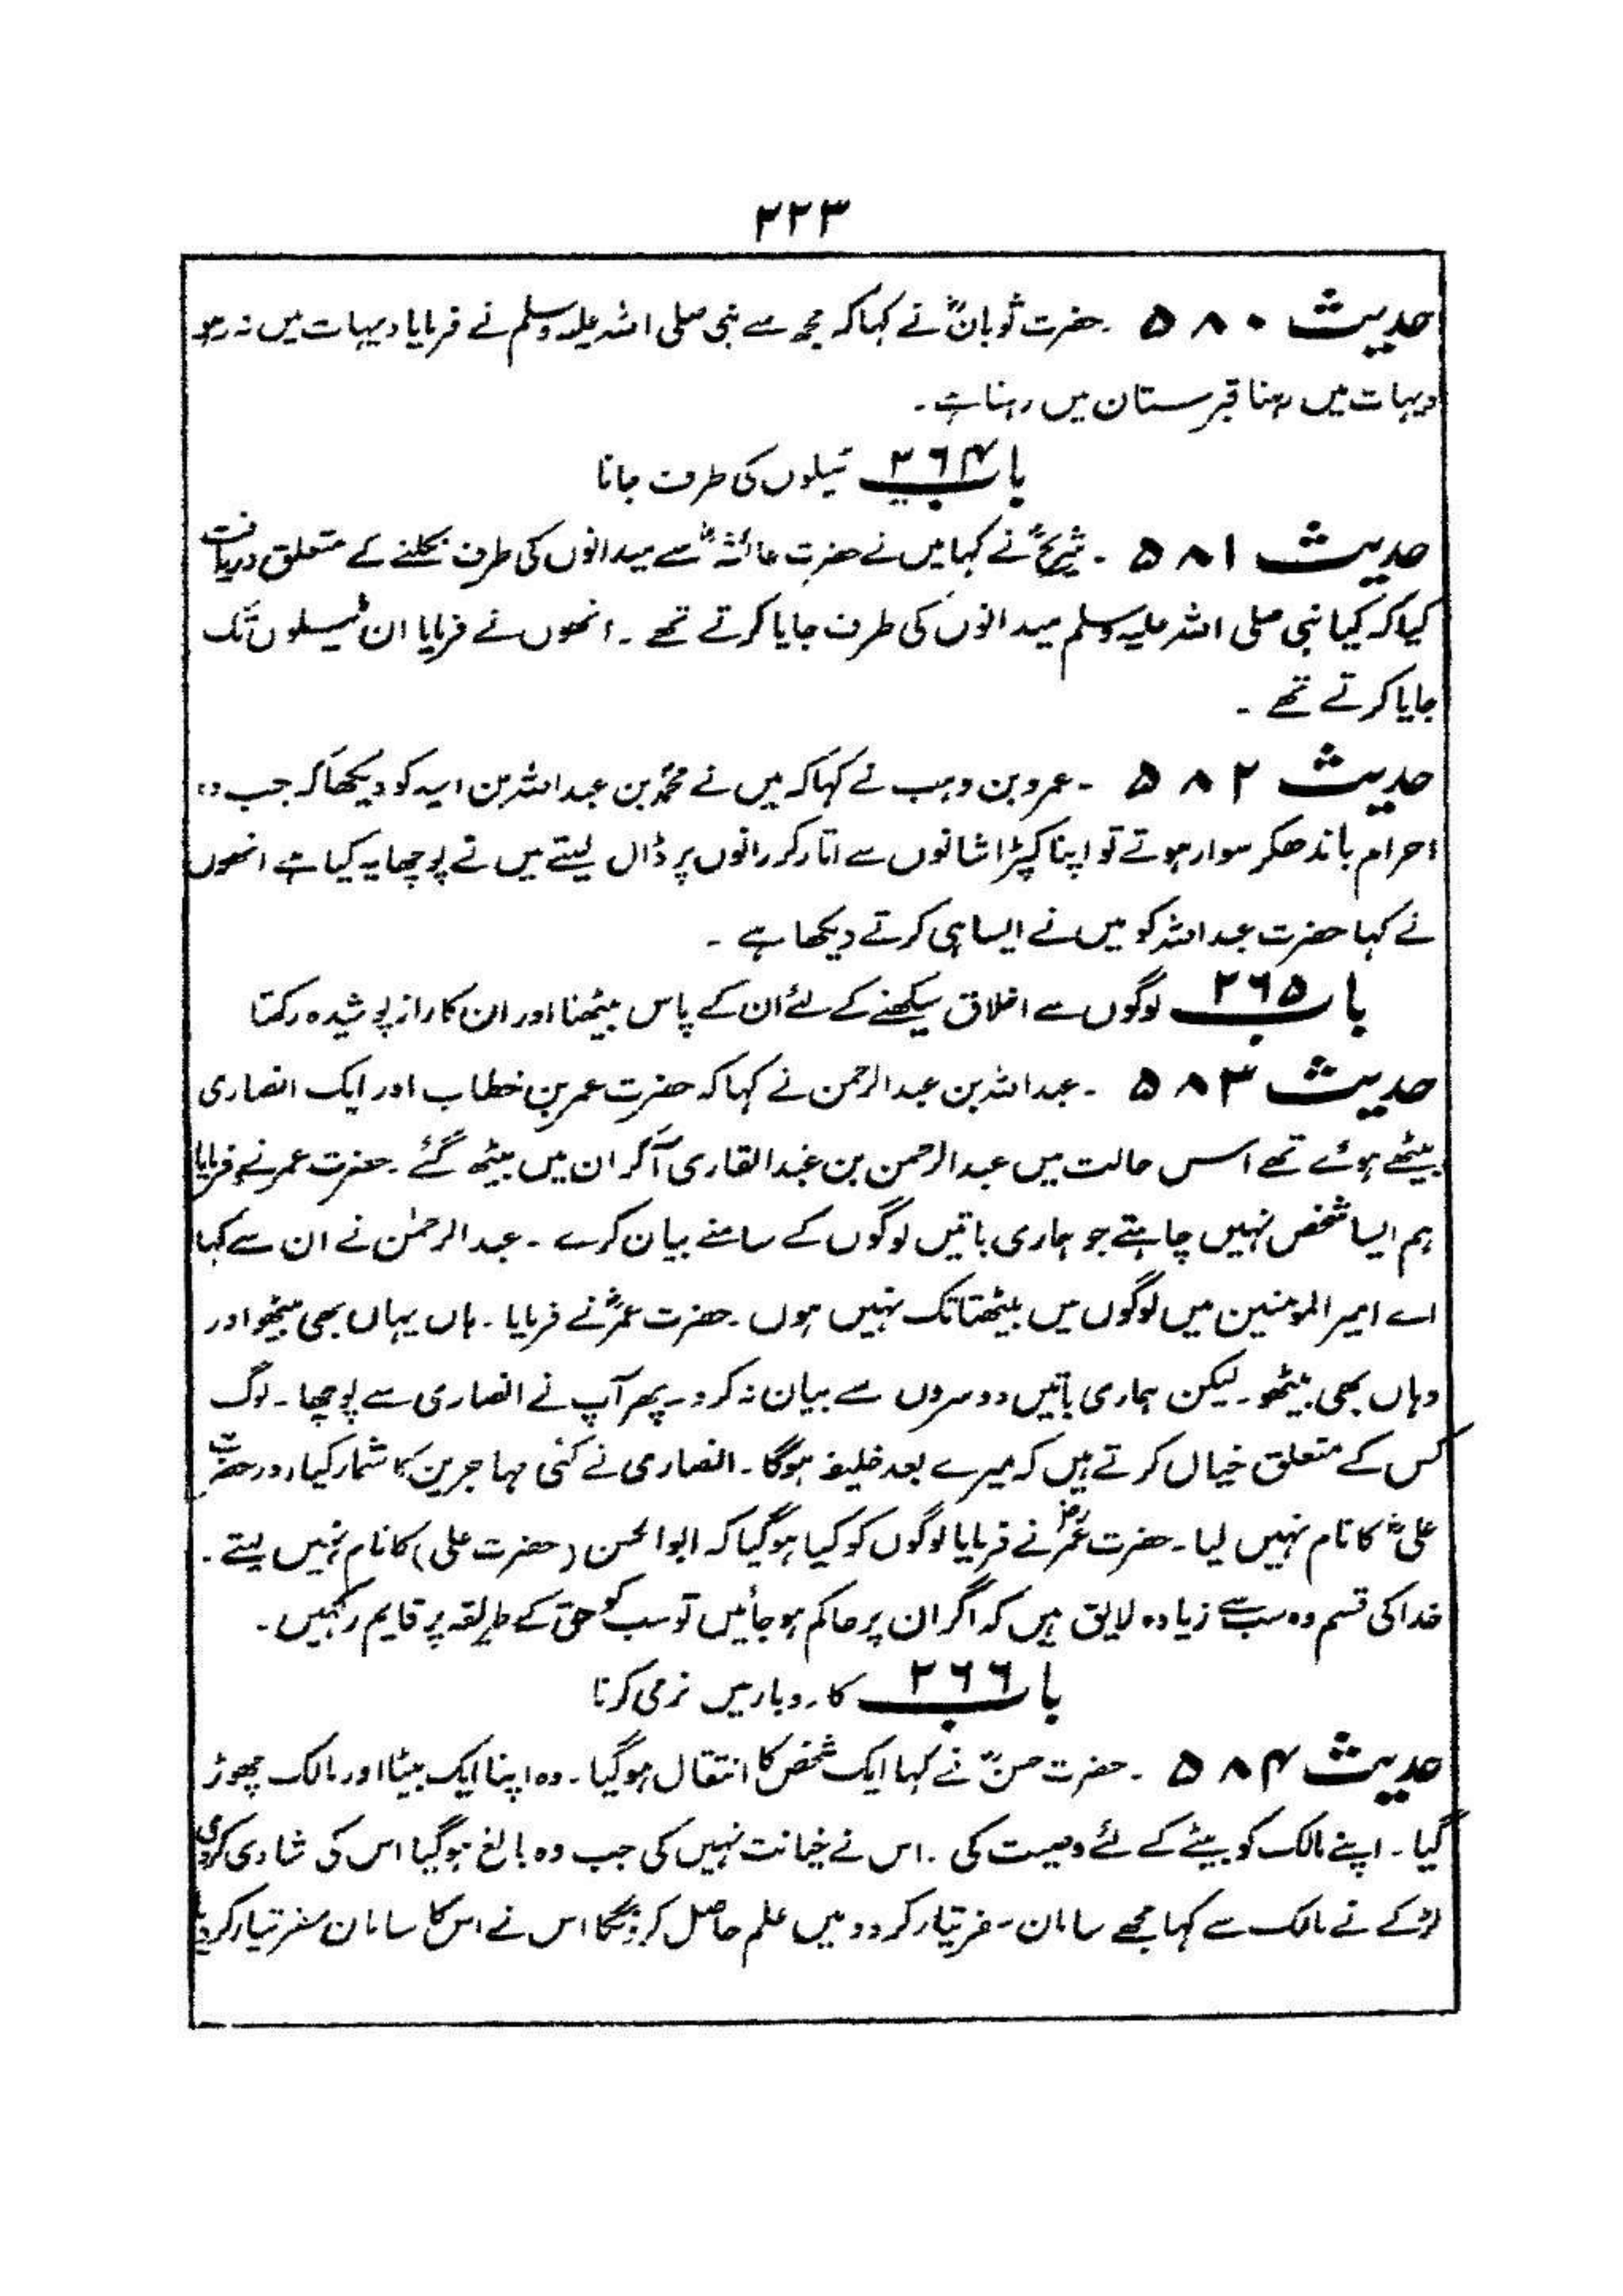 ۲۲۳
حدیث ۵۸۰ ۔ حضرت ثوبانؓ نے کہا کہ مجھ سے نبی صلی اللہ علیہ وسلم نے فرمایا دیہات میں نہ رہو
دیہات میں رہنا قبرستان میں رہنا ہے ۔
باب ۲۶۴ ٹیلوں کی طرف جانا
حدیث ۵۸۱ ۔ شریحؒ نے کہا میں نے حضرت عائشہؓ سے میدانوں کی طرف نکلنے کے متعلق دریافت
کیا کہ کیا نبی صلی اللہ علیہ وسلم میدانوں کی طرف جایا کرتے تھے ۔ انھوں نے فرمایا ان ٹیلوں تک
جایا کرتے تھے ۔
حدیث ۵۸۲ ۔ عمرو بن وہب نے کہا کہ میں نے محمدؒ بن عبداللہ بن اسید کو دیکھا کہ جب وہ
احرام باندھکر سوار ہوتے تو اپنا کپڑا شانوں سے اتار کر رانوں پر ڈال لیتے میں نے پوچھا یہ کیا ہے انھوں
نے کہا حضرت عبداللہ کو میں نے ایسا ہی کرتے دیکھا ہے ۔
باب ۲۶۵ لوگوں سے اخلاق سیکھنے کے لئے ان کے پاس بیٹھنا اور ان کا راز پوشیدہ رکھنا
حدیث ۵۸۳ ۔ عبداللہ بن عبدالرحمن نے کہا کہ حضرت عمر بن خطاب اور ایک انصاری
بیٹھے ہوئے تھے اس حالت میں عبدالرحمن بن عبدالقاری آکر ان میں بیٹھ گئے ۔ حضرت عمر نے فرمایا
ہم ایسا شخص نہیں چاہتے جو ہماری باتیں لوگوں کے سامنے بیان کرے ۔ عبدالرحمٰن نے ان سے کہا
اے امیر المومنین میں لوگوں میں بیٹھتا تک نہیں ہوں ۔ حضرت عمرؓ نے فرمایا ۔ ہاں یہاں بھی بیٹھو اور
وہاں بھی بیٹھو ۔ لیکن ہماری باتیں دوسروں سے بیان نہ کرو ۔ پھر آپ نے انصاری سے پوچھا ۔ لوگ
کس کے متعلق خیال کرتے ہیں کہ میرے بعد خلیفہ ہوگا ۔ انصاری نے کئی مہاجرین کا شمار کیا اور حضرت
علیؓ کا نام نہیں لیا ۔ حضرت عمرؓ نے فرمایا لوگوں کو کیا ہوگیا کہ ابوالحسن (حضرت علی) کا نام نہیں لیتے ۔
خدا کی قسم وہ سب سے زیادہ لایق ہیں کہ اگر ان پر حاکم ہو جائیں تو سب کو حق کے طریقہ پر قایم رکھیں ۔
باب ۲۶۶ کاروبار میں نرمی کرنا
حدیث ۵۸۴ ۔ حضرت حسنؒ نے کہا ایک شخص کا انتقال ہوگیا ۔ وہ اپنا ایک بیٹا اور مالک چھوڑ
گیا ۔ اپنے مالک کو بیٹے کے لئے وصیت کی ۔ اس نے خیانت نہیں کی جب وہ بالغ ہوگیا اس کی شادی کردی
لڑکے نے مالک سے کہا مجھے سامان سفر تیار کر دو میں علم حاصل کرونگا اس نے اس کا سامان سفر تیار کردیا